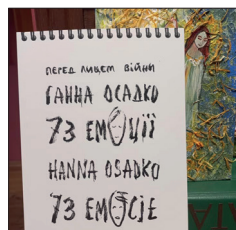 перед лицем війни
ГАННА ОСАДКО
73 ЕМОЦІЇ
HANNA OSADKO
73 EMOCJE